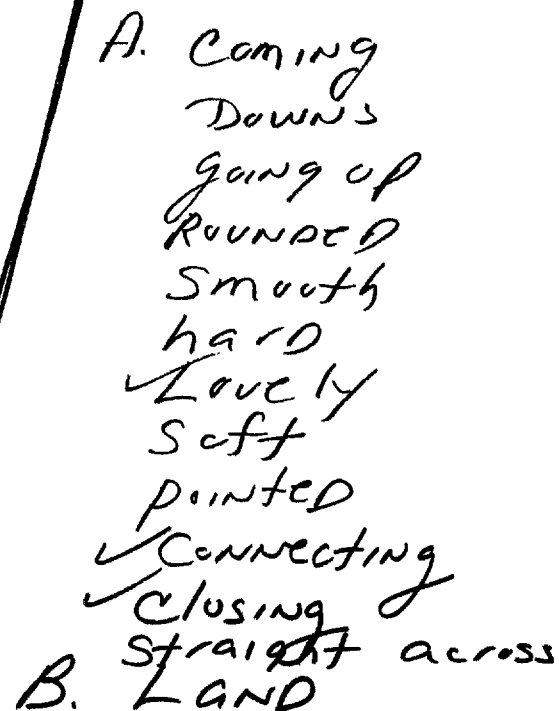 A. Coming
Downs
going up
ROUNDED
Smooth
harD
✓ Lovely
Soft
pointeD
✓ CONNectiNg
✓ Closing
Straight across
B. LAND